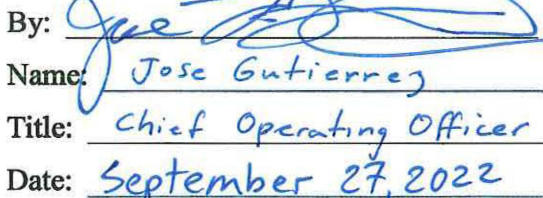 By: Jose
Name: Jose Gutierrez
Title: Chief Operating Officer
Date: September 27, 2022